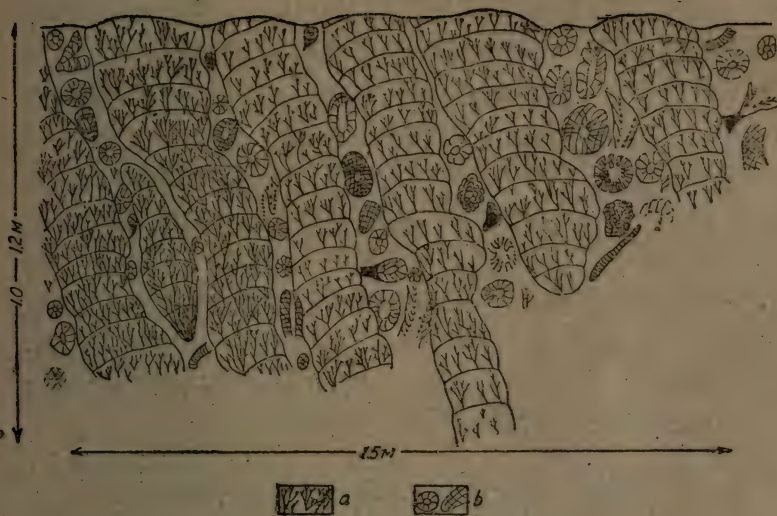 1.0 — 1.2 м
1.5 м
a
b